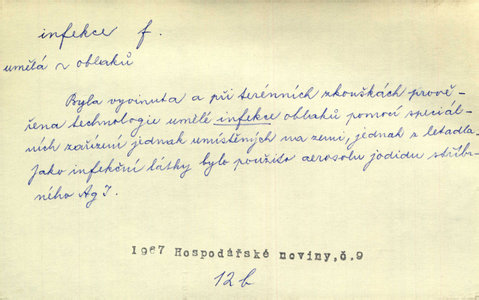 infekce f.
umělá ~ oblaků
Byla vyvinuta a při terénních zkouškách prově-
řena technologie umělé infekce oblaků pomocí speciál-
ních zařízení jednak umístěných na zemi, jednak z letadla.
Jako infekční látky bylo použito aerosolu jodidu stříbr-
ného AgI.
1967 Hospodářské noviny,č.9
12b